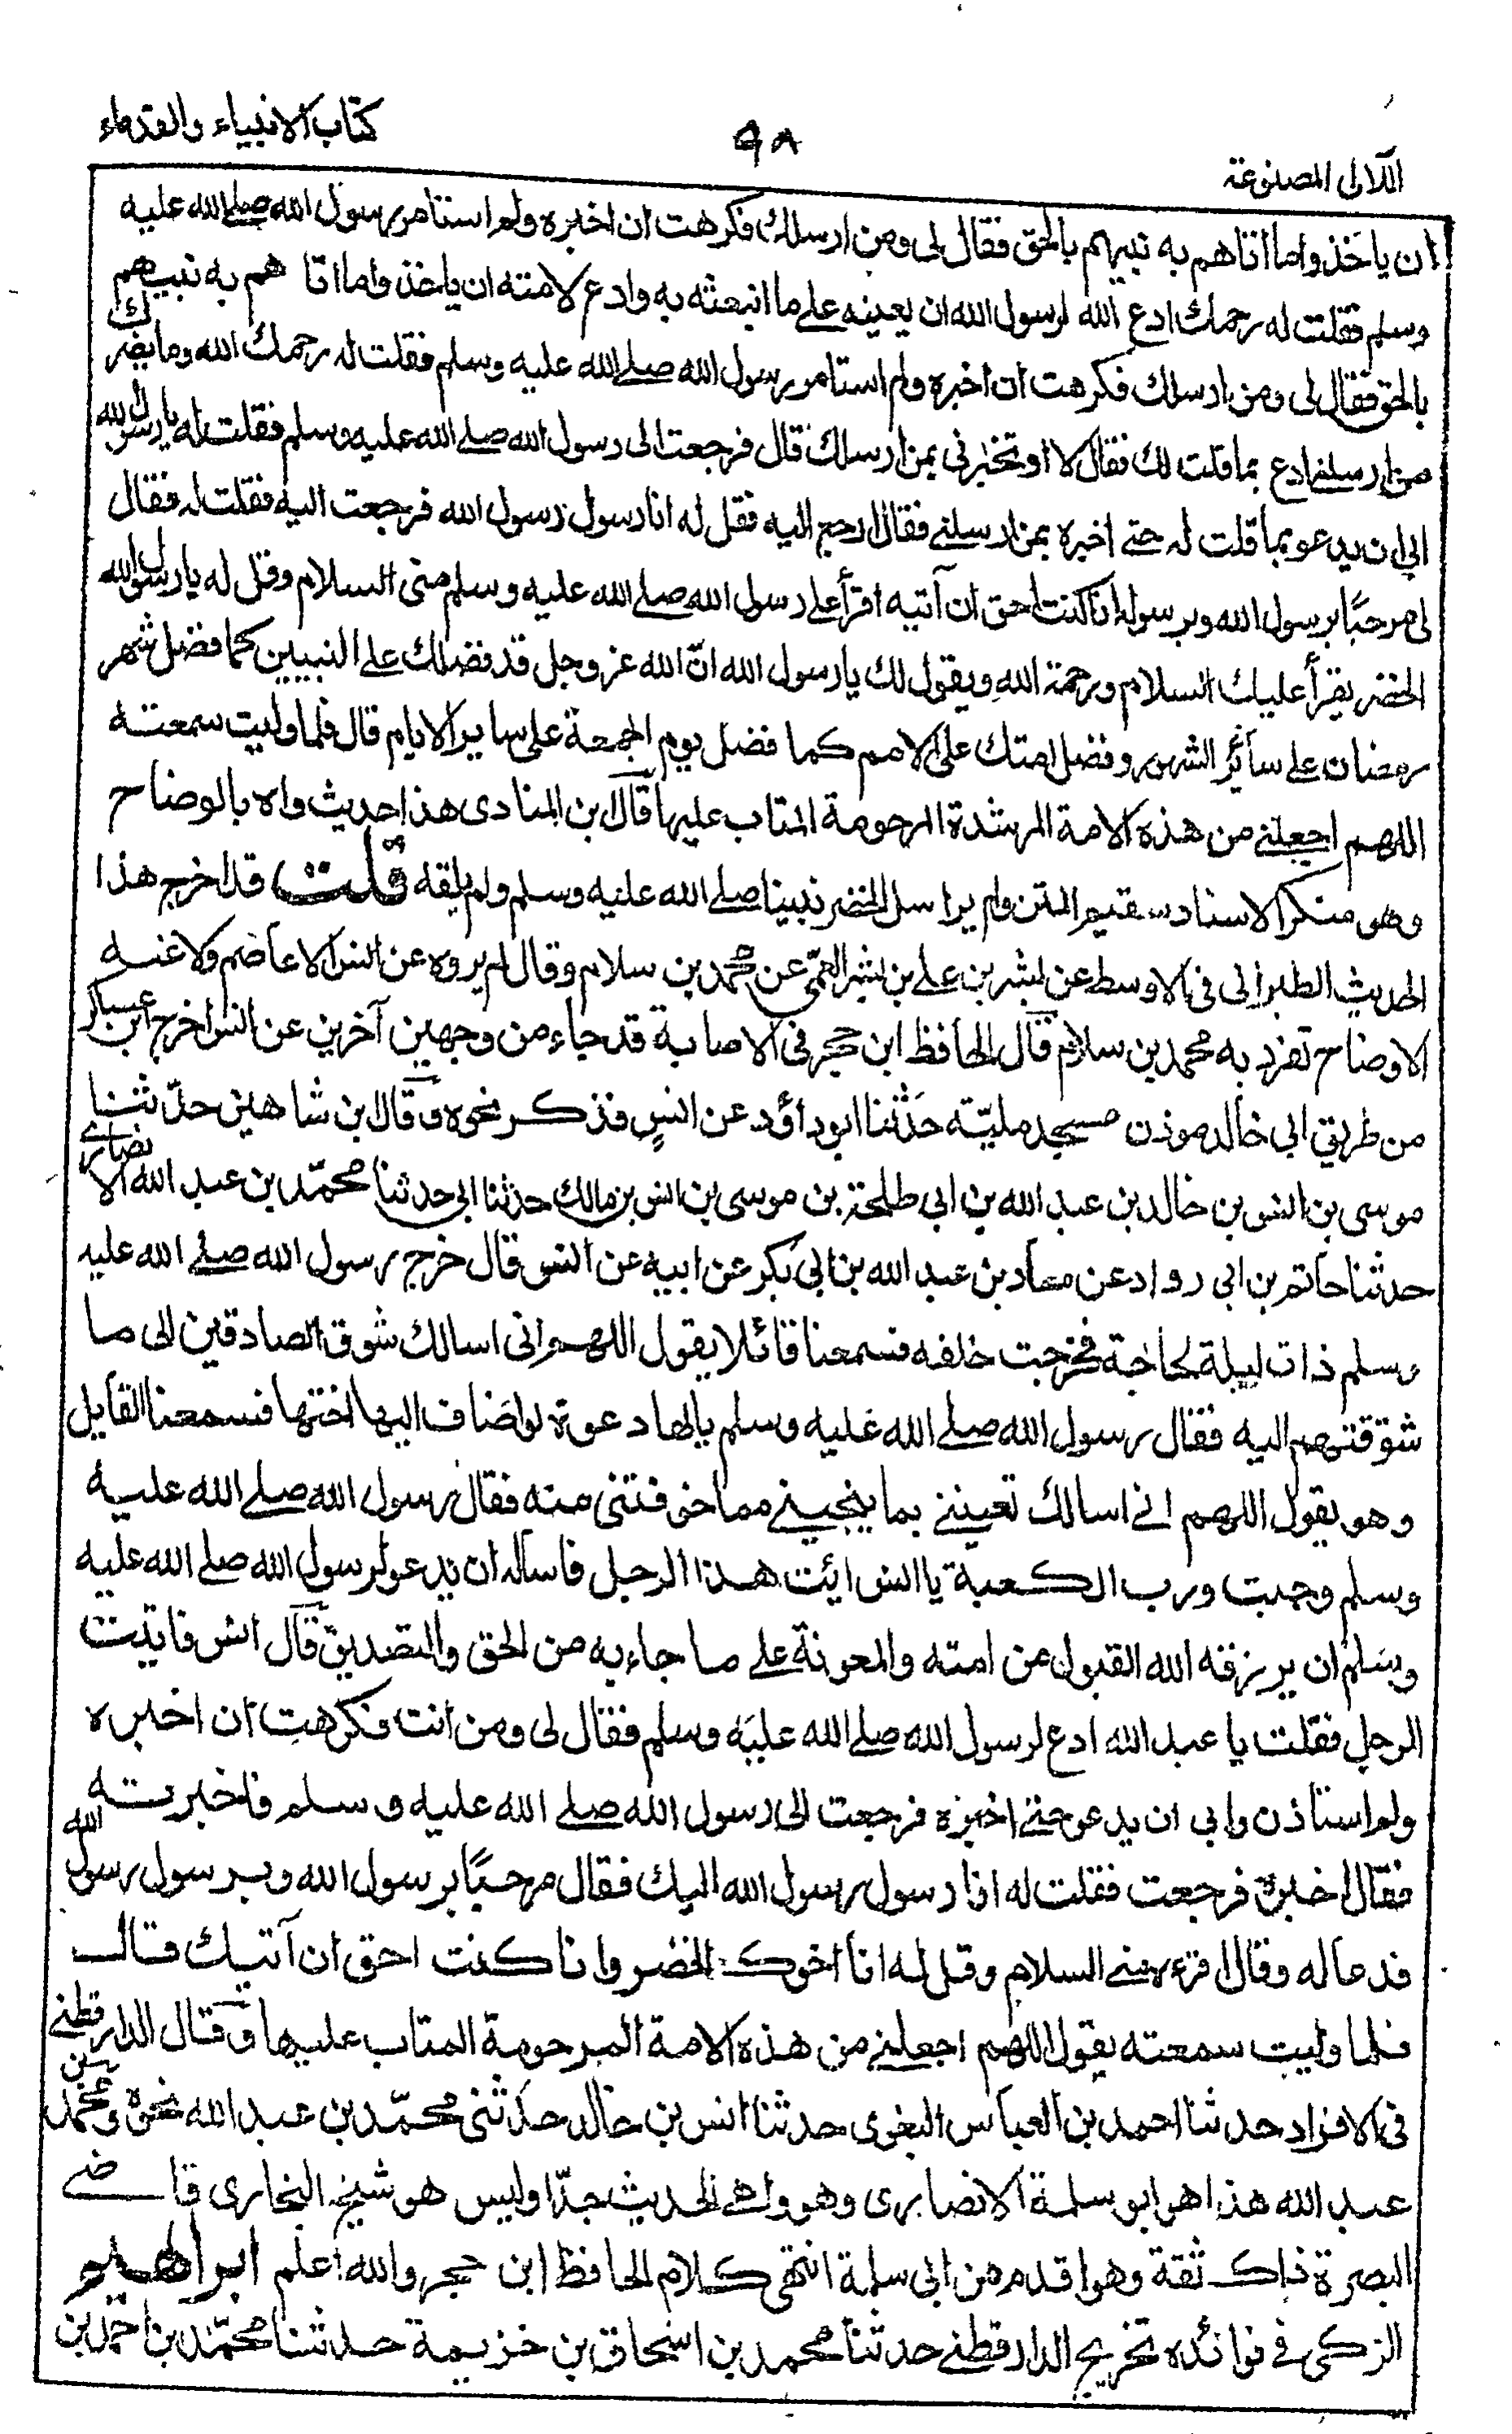 كتاب الانبياء والقدماء
٩٨
اللآلى المصنوعة
ان ياخذوا ما اتاهم به نبيهم بالحق فقال لى ومن ارسلك فكرهت ان اخبره ولم استامر رسول الله صلے الله عليه
وسلم فقلت له رحمك ادع الله لرسول الله ان يعينه علے ما ابتعثه به وادع لامته ان ياخذوا ما اتاهم به نبيهم
بالحق فقال لى ومن ارسلك فكرهت ان اخبره ولم استامر رسول الله صلے الله عليه وسلم فقلت له رحمك الله وما يضرك
من ارسلنے ادع بما قلت لك فقال لا او تخبرنى بمن ارسلك قال فرجعت الى رسول الله صلے الله عليه وسلم فقلت له يا رسول الله
ابى ان يدعو بما قلت له حتے اخبره بمن ارسلنے فقال ارجع اليه فقل له انا رسول رسول الله فرجعت اليه فقلت له فقال
لى مرحبًا برسول الله وبرسوله انا كنت احق ان آتيه اقرأ علے رسول الله صلے الله عليه وسلم منى السلام وقل له يا رسول الله
الخضر يقرأ عليك السلام ورحمة الله ويقول لك يا رسول الله انّ الله عز وجل قد فضلك علے النبيين كما فضل شهر
رمضان علے سائر الشهور وفضل امتك على الامم كما فضل يوم الجمعة على ساير الايام قال فلما وليت سمعته
اللهم اجعلنے من هذه الامة المرشدة المرحومة المتاب عليها قال ابن المنادى هذا حديث واه بالوضاح
وهو منكر الاسناد سقيم المتن ولم يراسل الخضر نبينا صلے الله عليه وسلم ولم يلقه قلت قد اخرج هذا
الحديث الطبرانى فى الاوسط عن بشر بن علے بن بشر العمّى عن محمد بن سلام وقال لم يروه عن انس الا عاصم ولا عنه
الا وضاح تفرد به محمد بن سلام قال الحافظ ابن حجر فى الاصابة قد جاء من وجهين آخرين عن انس اخرج ابن عساكر
من طريق ابى خالد موذن مسجد مليّة حدثنا ابو داؤد عن انس فذكر نحوه وقال بن شاهين حدّثنا
موسى بن انس بن خالد بن عبد الله بن ابى طلحة بن موسى بن انس بن مالك حدثنا ابى حدثنا محمّد بن عبد الله الانصارے
حدثنا حاتم بن ابى رواد عن معاذ بن عبد الله بن ابى بكر عن ابيه عن انس قال خرج رسول الله صلے الله عليه
وسلم ذات ليلة لحاجة فخرجت خلفه فسمعنا قائلا يقول اللهم انى اسالك شوق الصادقين الى ما
شوّقتهم اليه فقال رسول الله صلے الله عليه وسلم يالها دعوة لو اضاف اليها اختها فسمعنا القايل
وهو يقول اللهم انے اسالك تعيننے بما ينجينے مما خوفتنى منه فقال رسول الله صلے الله عليه
وسلم وجبت ورب الكعبة يا انس ائت هذا الرجل فاساله ان يدعو لرسول الله صلے الله عليه
وسلم ان يرزقه الله القبول من امته والمعونة علے ما جاء به من الحق والتصديق قال انس فاتيت
الرجل فقلت يا عبد الله ادع لرسول الله صلے الله عليه وسلم فقال لى ومن انت فكرهت ان اخبره
ولم استاذن وابى ان يدعو حتے اخبره فرجعت الى رسول الله صلے الله عليه وسلم فاخبرته
فقال اخبره فرجعت فقلت له انا رسول رسول الله اليك فقال مرحبًا برسول الله وبرسول رسول الله
فدعا له وقال اقرءه منے السلام وقل له انا اخوك الخضر وانا كنت احق ان آتيك قال
فلما وليت سمعته يقول اللهم اجعلنے من هذه الامة المرحومة المتاب عليها وقال الدارقطنے
فى الافراد حدثنا احمد بن العباس البغوى حدثنا انس بن خالد حدثنى محمّد بن عبد الله نحوه ومحمد بن
عبد الله هذا هو ابو سلمة الانصارى وهو واهے الحديث جدّا وليس هو شيخ البخارى قاضے
البصرة ذاك ثقة وهو اقدم من ابى سلمة انتهى كلام الحافظ ابن حجر والله اعلم ابراهيم
الزكى فے فوائده تخريج الدارقطنے حدثنا محمد بن اسحاق بن خزيمة حدثنا محمّد بن احمد بن